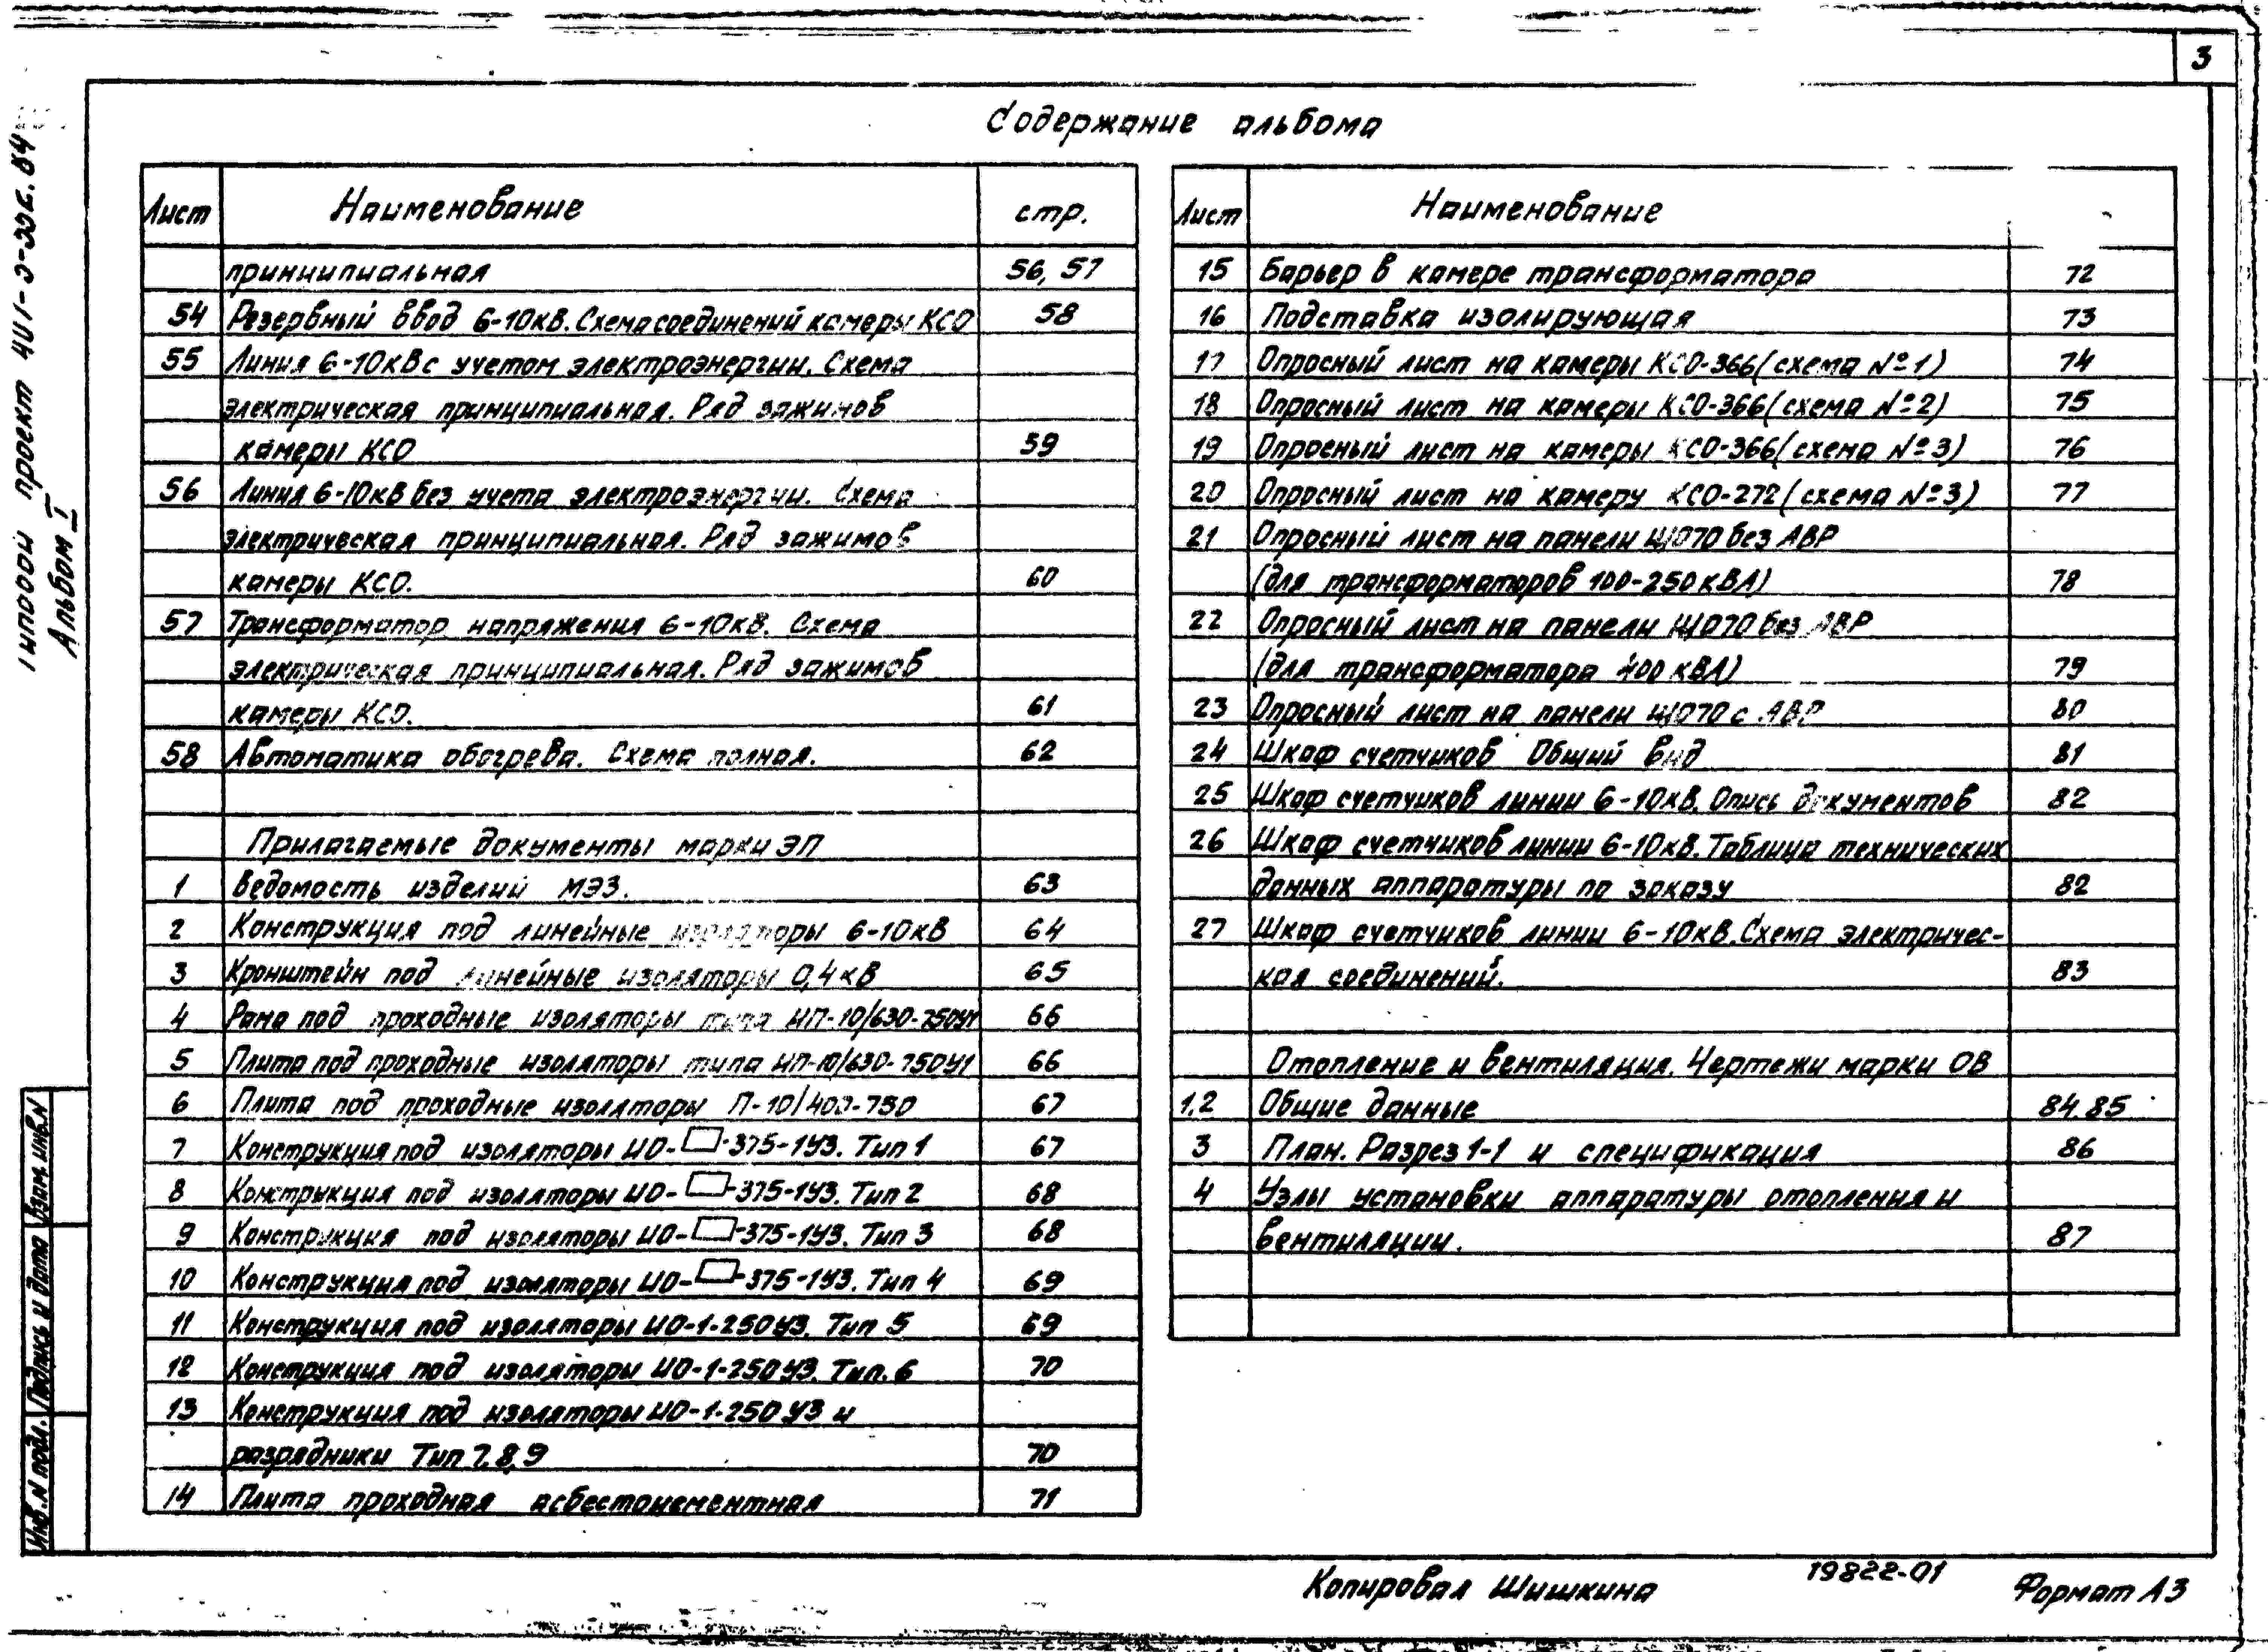 3
Содержание альбома
Лист Наименование стр.
принципиальная 56, 57
54 Резервный ввод 6-10кВ. Схема соединений камеры КСО 58
55 Линия 6-10кВ с учетом электроэнергии. Схема
электрическая принципиальная. Ряд зажимов
камеры КСО 59
56 Линия 6-10кВ без учета электроэнергии. Схема
электрическая принципиальная. Ряд зажимов
камеры КСО. 60
57 Трансформатор напряжения 6-10кВ. Схема
электрическая принципиальная. Ряд зажимов
камеры КСО. 61
58 Автоматика обогрева. Схема полная. 62
Прилагаемые документы марки ЭП
1 Ведомость изделий МЭЗ. 63
2 Конструкция под линейные изоляторы 6-10кВ 64
3 Кронштейн под линейные изоляторы 0,4кВ 65
4 Рама под проходные изоляторы типа ИП-10/630-750У1 66
5 Плита под проходные изоляторы типа ИП-10/630-750У1 66
6 Плита под проходные изоляторы П-10/400-750 67
7 Конструкция под изоляторы ИО-□-375-1У3. Тип 1 67
8 Конструкция под изоляторы ИО-□-375-1У3. Тип 2 68
9 Конструкция под изоляторы ИО-□-375-1У3. Тип 3 68
10 Конструкция под изоляторы ИО-□-375-1У3. Тип 4 69
11 Конструкция под изоляторы ИО-1-250У3. Тип 5 69
12 Конструкция под изоляторы ИО-1-250У3. Тип. 6 70
13 Конструкция под изоляторы ИО-1-250У3 и
разрядники Тип 7,8,9 70
14 Плита проходная асбестоцементная 71
Лист Наименование
15 Барьер в камере трансформатора 72
16 Подставка изолирующая 73
17 Опросный лист на камеры КСО-366 (схема №1) 74
18 Опросный лист на камеры КСО-366 (схема №2) 75
19 Опросный лист на камеры КСО-366 (схема №3) 76
20 Опросный лист на камеру КСО-272 (схема №3) 77
21 Опросный лист на панели ЩО70 без АВР
(для трансформаторов 100-250кВА) 78
22 Опросный лист на панели ЩО70 без АВР
(для трансформатора 400кВА) 79
23 Опросный лист на панели ЩО70 с АВР 80
24 Шкаф счетчиков Общий вид 81
25 Шкаф счетчиков линии 6-10кВ. Опись документов 82
26 Шкаф счетчиков линии 6-10кВ. Таблица технических
данных аппаратуры по заказу 82
27 Шкаф счетчиков линии 6-10кВ. Схема электричес-
кая соединений. 83
Отопление и вентиляция. Чертежи марки ОВ
1,2 Общие данные 84,85
3 План. Разрез 1-1 и спецификация 86
4 Узлы установки аппаратуры отопления и
вентиляции. 87
проект
Альбом I
Взам. инв.N
Подпись и дата
Инв. N подл.
Копировал Шишкина
19822-01
Формат А3